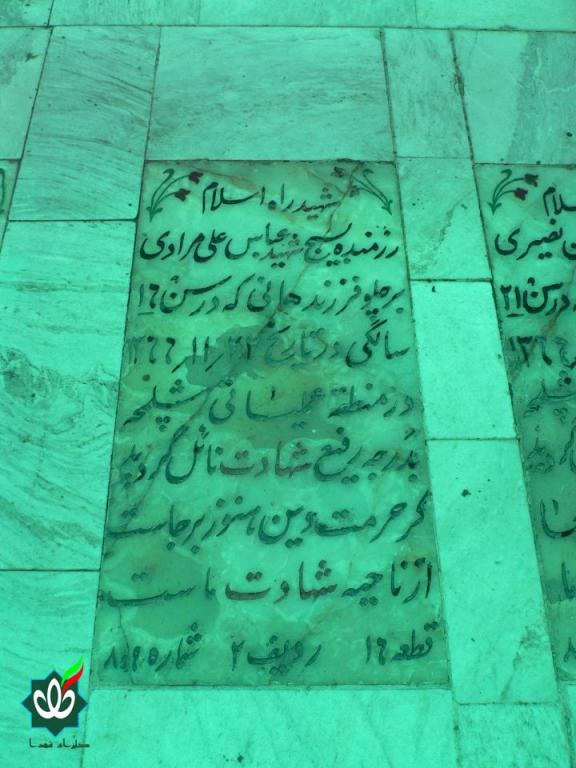 شهید راه اسلام
رزمنده بسیج شهید عباس علی مرادی
فرزند هانی که در سن ۱۶
سالگی در تاریخ ۱۳۶۶٫۱۱٫۲۲
در منطقه عملیاتی شلمچه
بدرجه رفیع شهادت نائل گردید
گر حرمت دین هنوز برجاست
از ناحیه شهادت ماست
قطعه ۱۶ ردیف ۲ شماره
در سن ۲۱